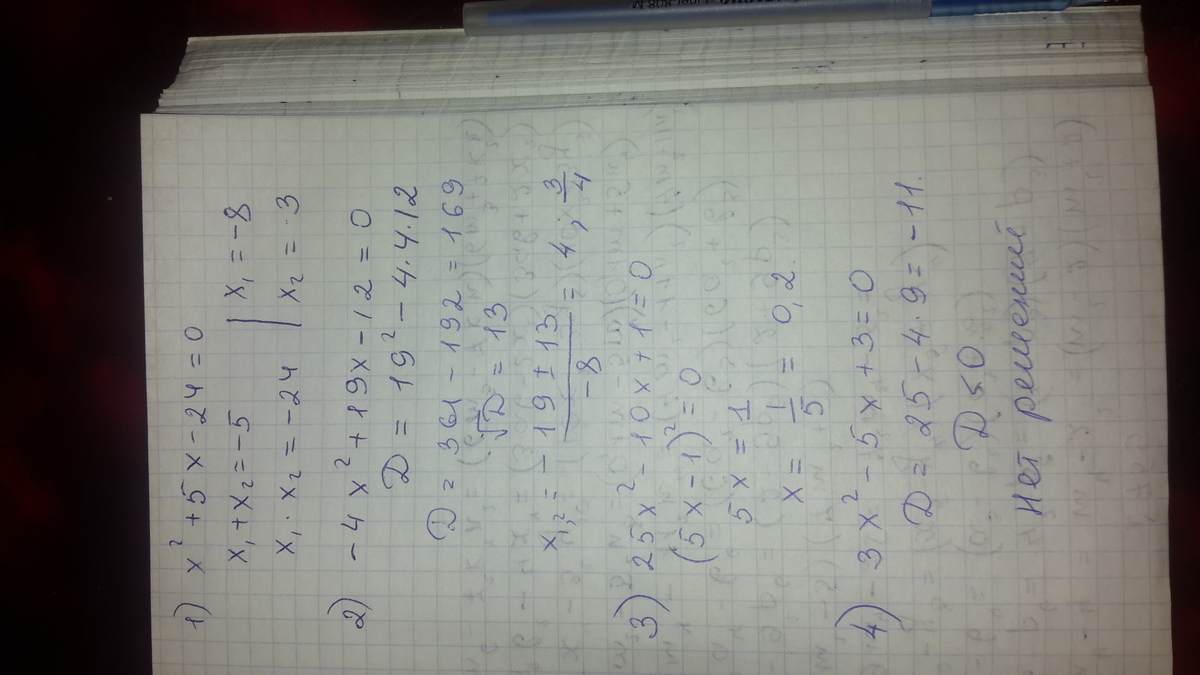 1) x² + 5x - 24 = 0
x₁ + x₂ = -5 | x₁ = -8
x₁ · x₂ = -24 | x₂ = 3
2) -4x² + 19x - 12 = 0
D = 19² - 4·4·12
D = 361 - 192 = 169
√D = 13
x₁,₂ = (-19 ± 13)/-8 = 4; 3/4
3) 25x² - 10x + 1 = 0
(5x - 1)² = 0
5x = 1
x = 1/5 = 0,2.
4) -3x² - 5x + 3 = 0
D = 25 - 4·9 = -11.
D < 0.
Нет решений